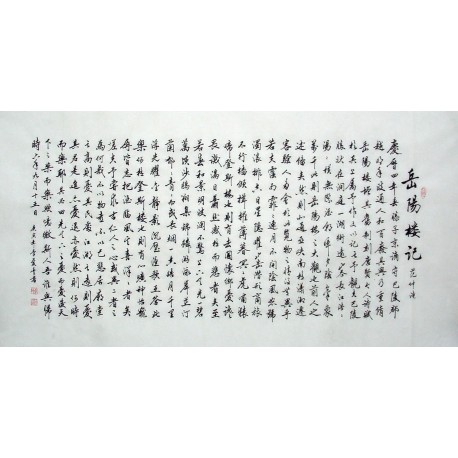 岳陽樓記 范仲淹
慶曆四年春滕子京謫守巴陵郡
越明年政通人和百廢具興乃重修
岳陽樓增其舊制刻唐賢今人詩賦
於其上屬予作文以記之予觀夫巴陵
勝狀在洞庭一湖銜遠山吞長江浩浩
湯湯橫無際涯朝暉夕陰氣象萬
千此則岳陽樓之大觀也前人之
述備矣然則北通巫峽南極瀟湘遷
客騷人多會於此覽物之情得無異乎
若夫霪雨霏霏連月不開陰風怒號
濁浪排空日星隱耀山岳潛形商旅
不行檣傾楫摧薄暮冥冥虎嘯猿
啼登斯樓也則有去國懷鄉憂讒
畏譏滿目蕭然感極而悲者矣至
若春和景明波瀾不驚上下天光一碧
萬頃沙鷗翔集錦鱗游泳岸芷汀
蘭郁郁青青而或長煙一空皓月千里
浮光躍金靜影沉璧漁歌互答此
樂何極登斯樓也則有心曠神怡寵
辱皆忘把酒臨風其喜洋洋者矣
嗟夫予嘗求古仁人之心或異二者之
為何哉不以物喜不以己悲居廟堂
之高則憂其民處江湖之遠則憂
其君是進亦憂退亦憂然則何時
而樂耶其必曰先天下之憂而憂後天
下之樂而樂歟噫微斯人吾誰與歸
時六年九月十五日